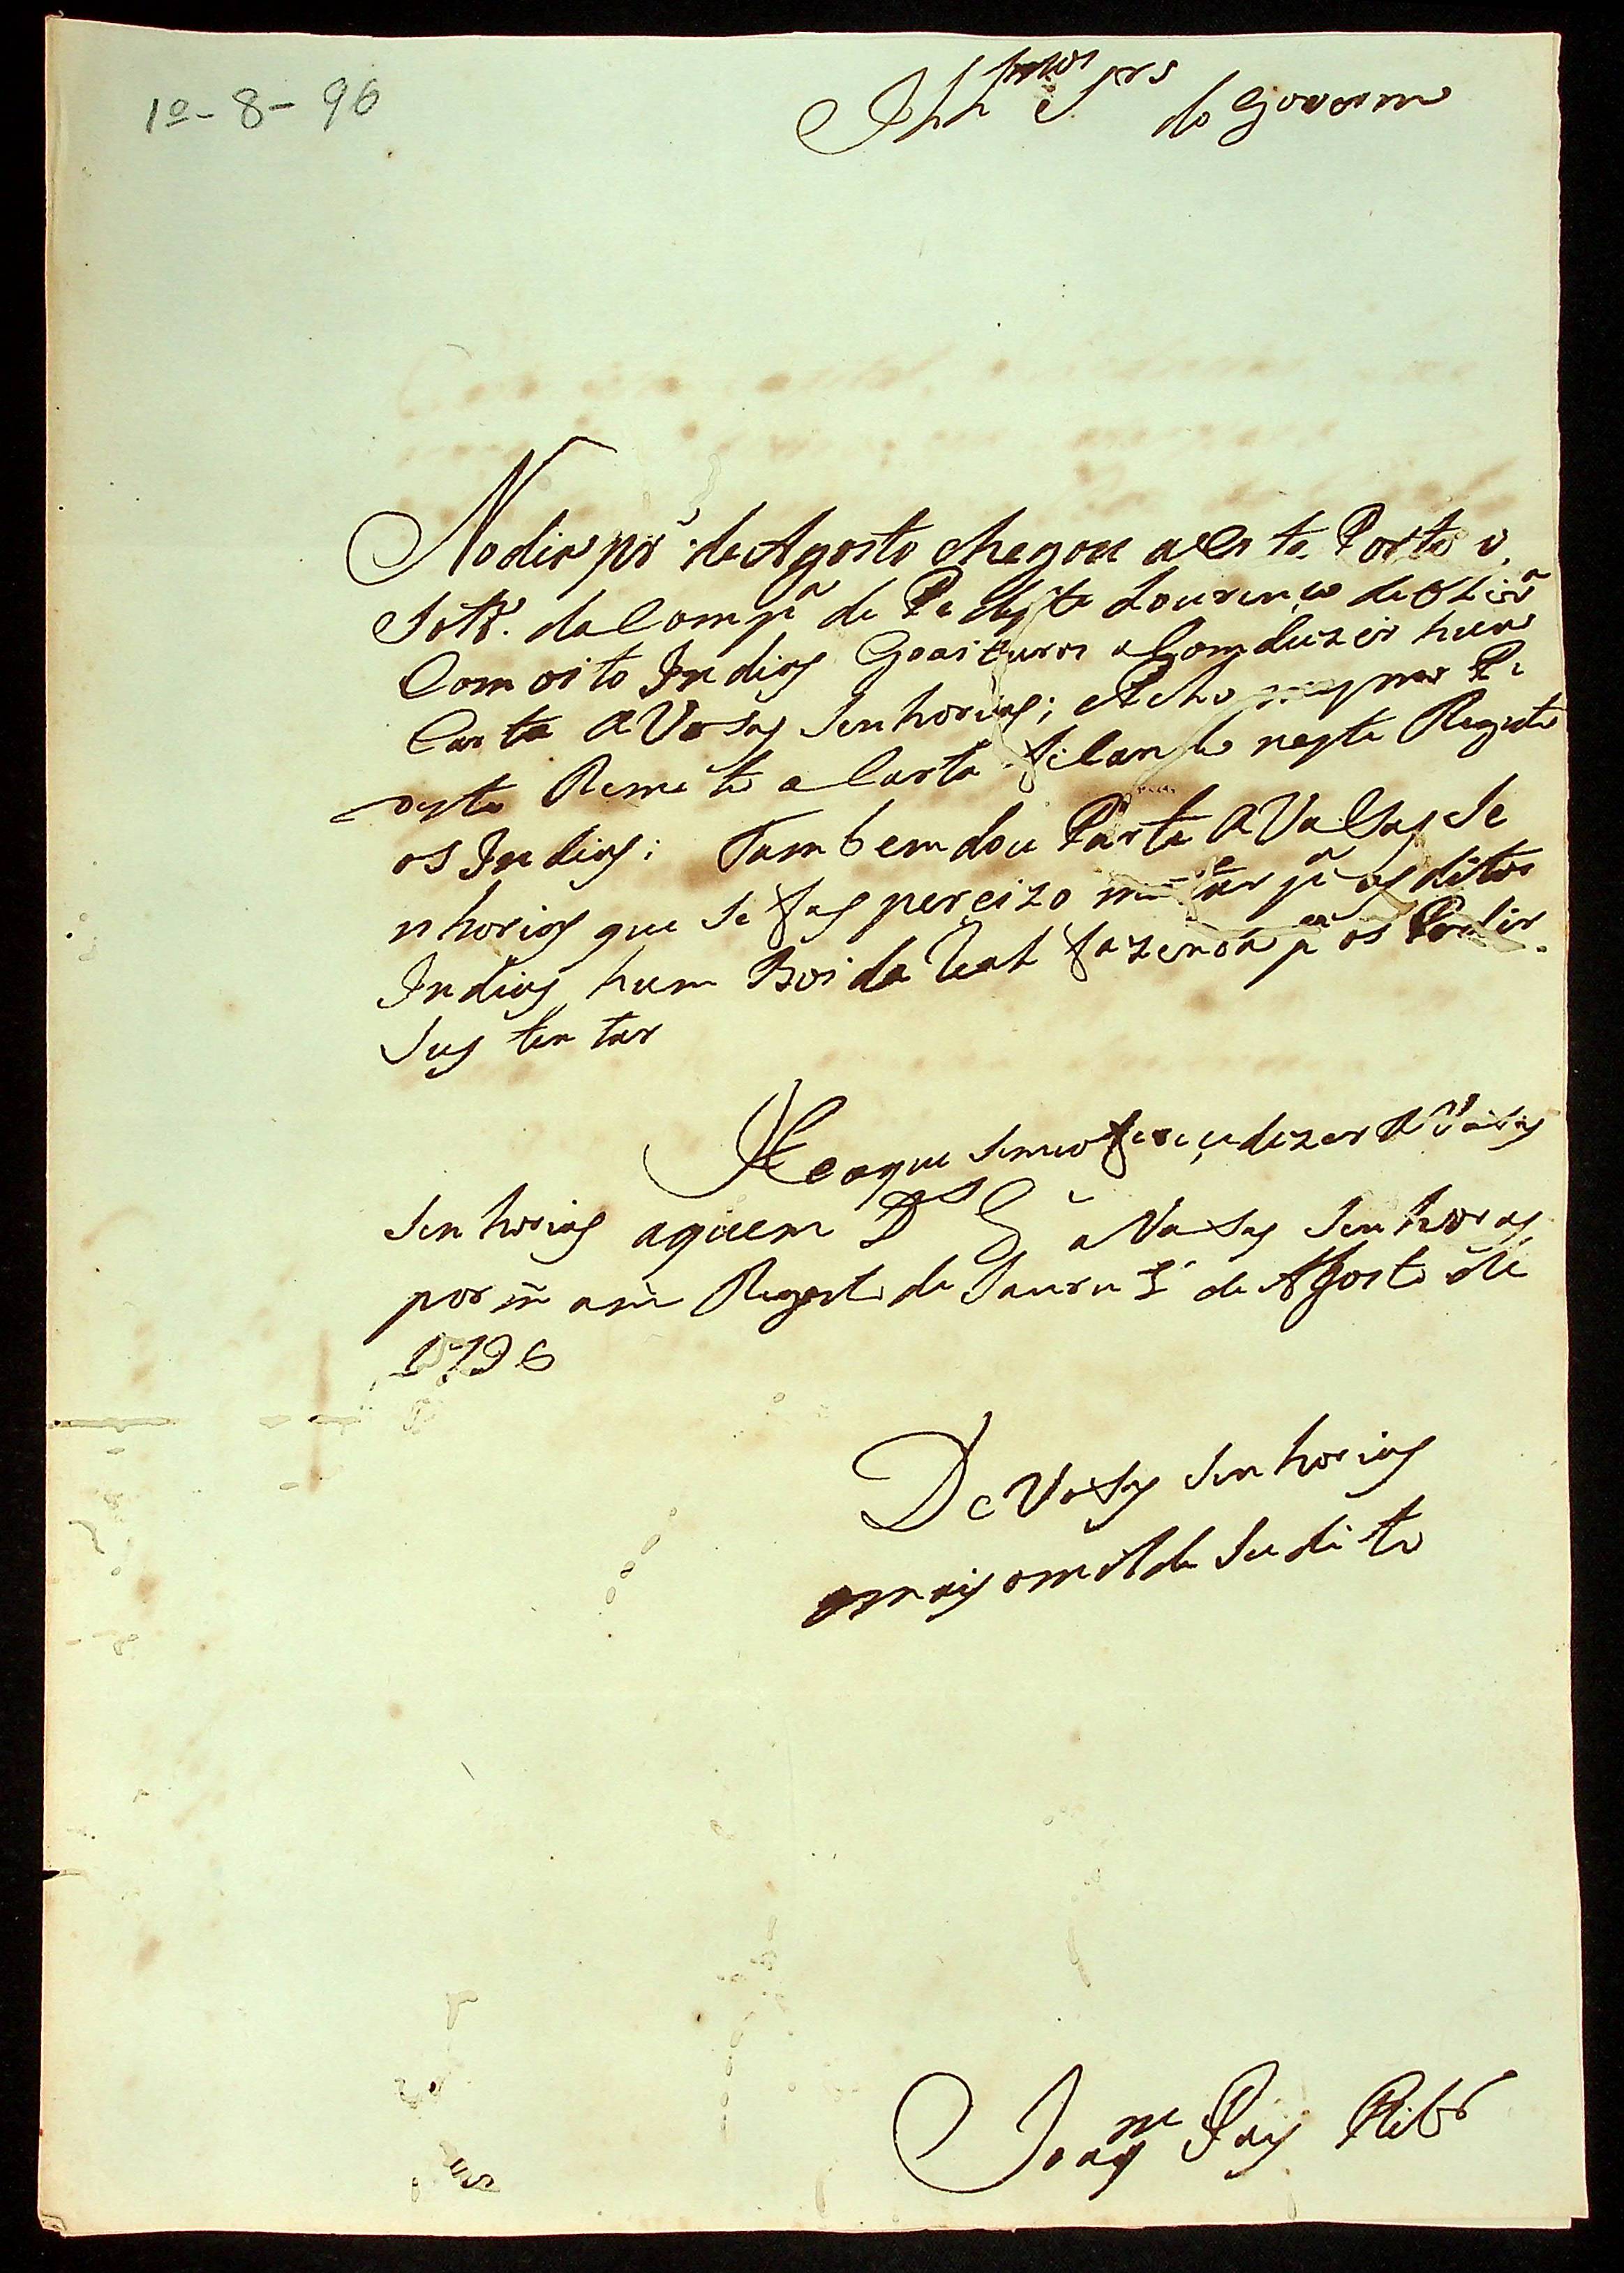 1º - 8 - 96
Ill.mos Snrs do Governo
No dia pr.º de Agosto chegou a esta Porte o
da Comp.ª de Pedeste Lourenço de Olir.ª
Com oito Indios Goaicurus a Comduzir huma
Carta A Vosas Senhorias; e Acho
este Remeto a Carta ficando neste Registo
os Indios; Tambem dou Parte A Vasas Se
nhorias que se fas perçizo matar p.ª os ditos
Indios hum Boi da Real fazenda p.ª os Poder
Sustentar
He o que se me oferece dizer A Vasas
Senhorias a quem D.s G.e a Vasas Senhoras
por m.s an.s Registo do Jauru 1º de Agosto de
1796
De Vosas Senhorias
o mais omilde Sudito
Joaq.m Pais Ribr.º